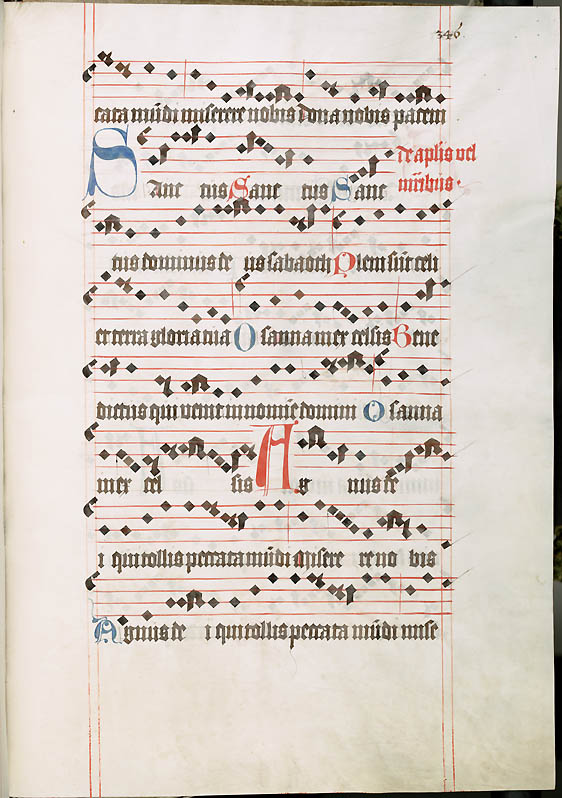 346
tata mūdi miserere nobis dona nobis pacem
Sanc tus Sanc tus Sanc
de aplis vel
mr̄ibus.
tus dominus de us sabaoth Pleni sūt celi
et terra gloria tua Osanna in ex celsis Bene
dictus qui venit in nomīe domini Osanna
in ex cel sis Ag nus de
i qui tollis peccata mūdi misere re no bis
Agnus de i qui tollis peccata mūdi mise